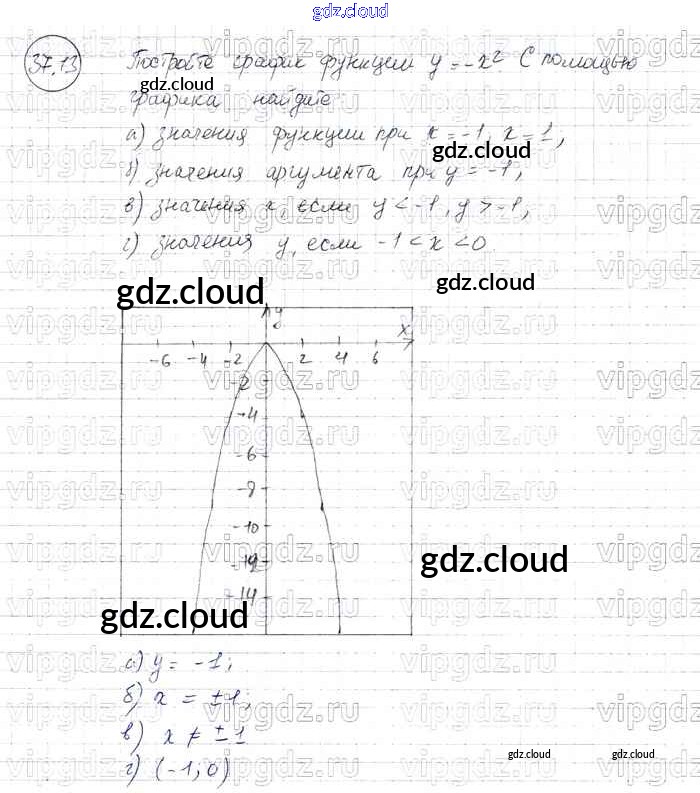 gdz.cloud
37.13 Постройте график функции y = -x². С помощью
gdz.cloud
графика найдите:
а) значения функции при x = -1, x = 1;
gdz.cloud
б) значения аргумента при y = -1;
в) значения x, если y < -1, y > -1,
г) значения y, если -1 < x < 0.
gdz.cloud gdz.cloud
y
x
-6 -4 -2 2 4 6
-2
-4
-6
-8
-10
-14
gdz.cloud
gdz.cloud
а) y = -1;
б) x = ±1,
в) x ≠ ±1
г) (-1; 0)
gdz.cloud gdz.cloud
vipgdz.ru